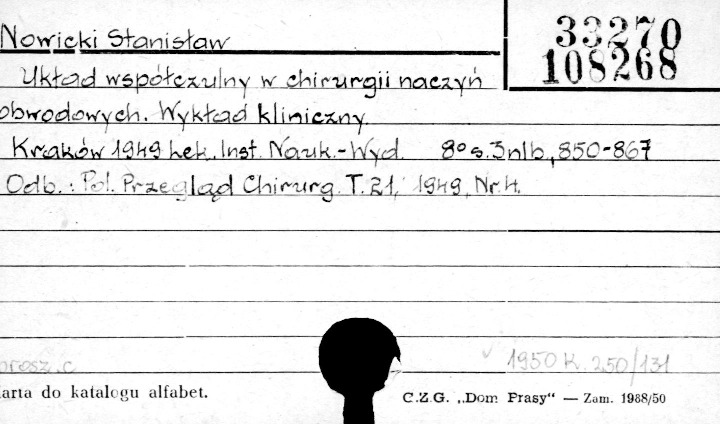 Nowicki Stanisław
33270
108268
Układ współczulny w chirurgii naczyń
obwodowych. Wykład kliniczny.
Kraków 1949 Lek. Inst. Nauk.-Wyd. 8° s. 3 nlb, 850-867
Odb.: Pol. Przegląd Chirurg. T. 21, 1949, Nr. 4.
brosz. c
1950 K. 250/131
arta do katalogu alfabet.
C.Z.G. „Dom Prasy“ — Zam. 1988/50